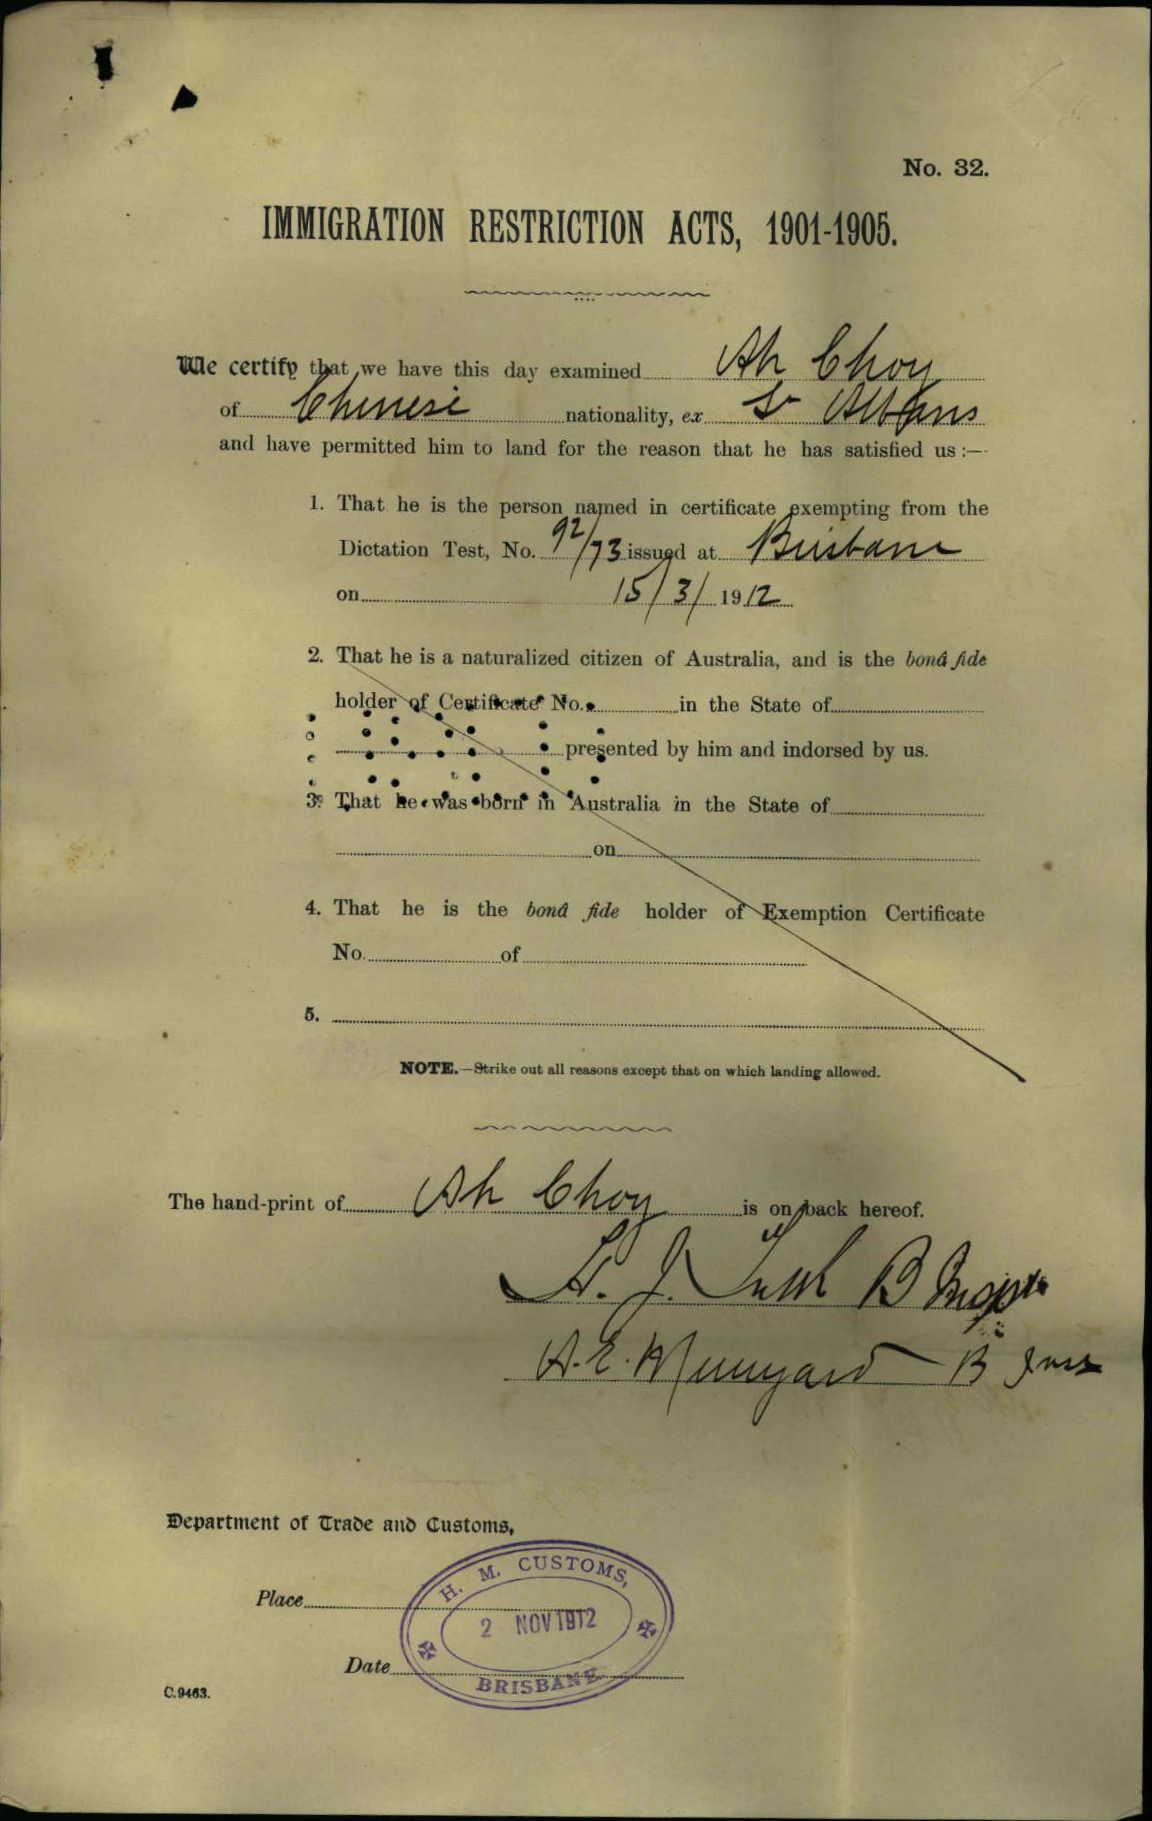 No. 32.
IMMIGRATION RESTRICTION ACTS, 1901-1905.
We certify that we have this day examined Ah Choy
of Chinese nationality, ex St Albans
and have permitted him to land for the reason that he has satisfied us :—
1. That he is the person named in certificate exempting from the
Dictation Test, No. 92/73 issued at Brisbane
on 15/3/1912
2. That he is a naturalized citizen of Australia, and is the bonâ fide
holder of Certificate No. in the State of
presented by him and indorsed by us.
3. That he was born in Australia in the State of
on
4. That he is the bonâ fide holder of Exemption Certificate
No. of
5.
NOTE.—Strike out all reasons except that on which landing allowed.
The hand-print of Ah Choy is on back hereof.
J. B
A. E. Munyard B
Department of Trade and Customs,
H. M. CUSTOMS,
Place
2 NOV 1912
Date
BRISBANE
C.9463.